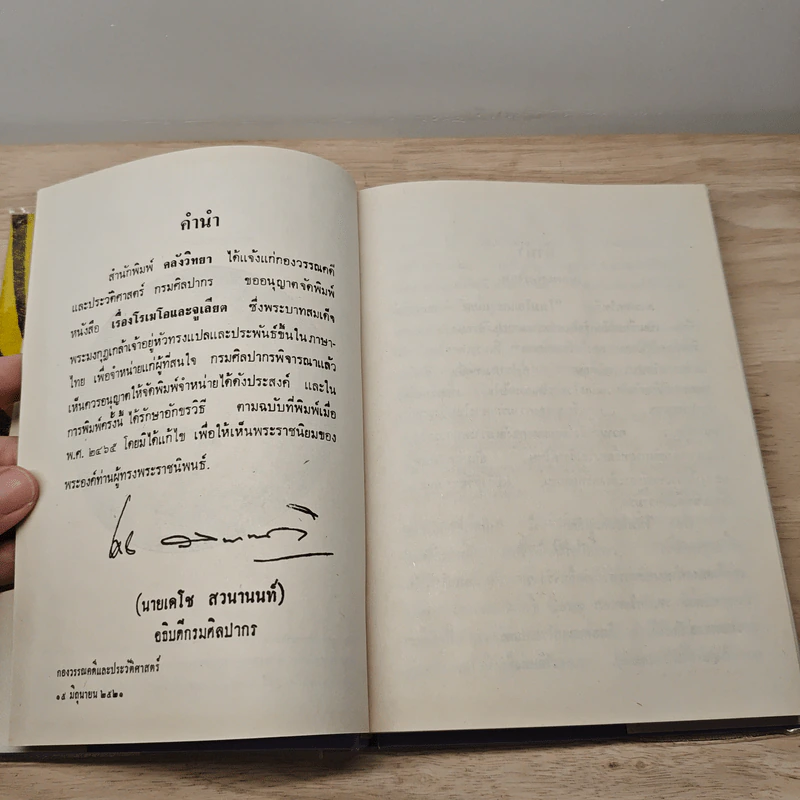 คำนำ
สำนักพิมพ์ คลังวิทยา ได้แจ้งแก่กองวรรณคดี
และประวัติศาสตร์ กรมศิลปากร ขออนุญาตจัดพิมพ์
หนังสือ เรื่องโรเมโอและจูเลียต ซึ่งพระบาทสมเด็จ
พระมงกุฎเกล้าเจ้าอยู่หัวทรงแปลและประพันธ์ขึ้นในภาษา-
ไทย เพื่อจำหน่ายแก่ผู้ที่สนใจ กรมศิลปากรพิจารณาแล้ว
เห็นควรอนุญาตให้จัดพิมพ์จำหน่ายได้ดังประสงค์ และใน
การพิมพ์ครั้งนี้ ได้รักษาอักขรวิธี ตามฉบับที่พิมพ์เมื่อ
พ.ศ. ๒๔๖๕ โดยมิได้แก้ไข เพื่อให้เห็นพระราชนิยมของ
พระองค์ท่านผู้ทรงพระราชนิพนธ์.
(นายเดโช สวนานนท์)
อธิบดีกรมศิลปากร
กองวรรณคดีและประวัติศาสตร์
๑๕ มิถุนายน ๒๕๒๑